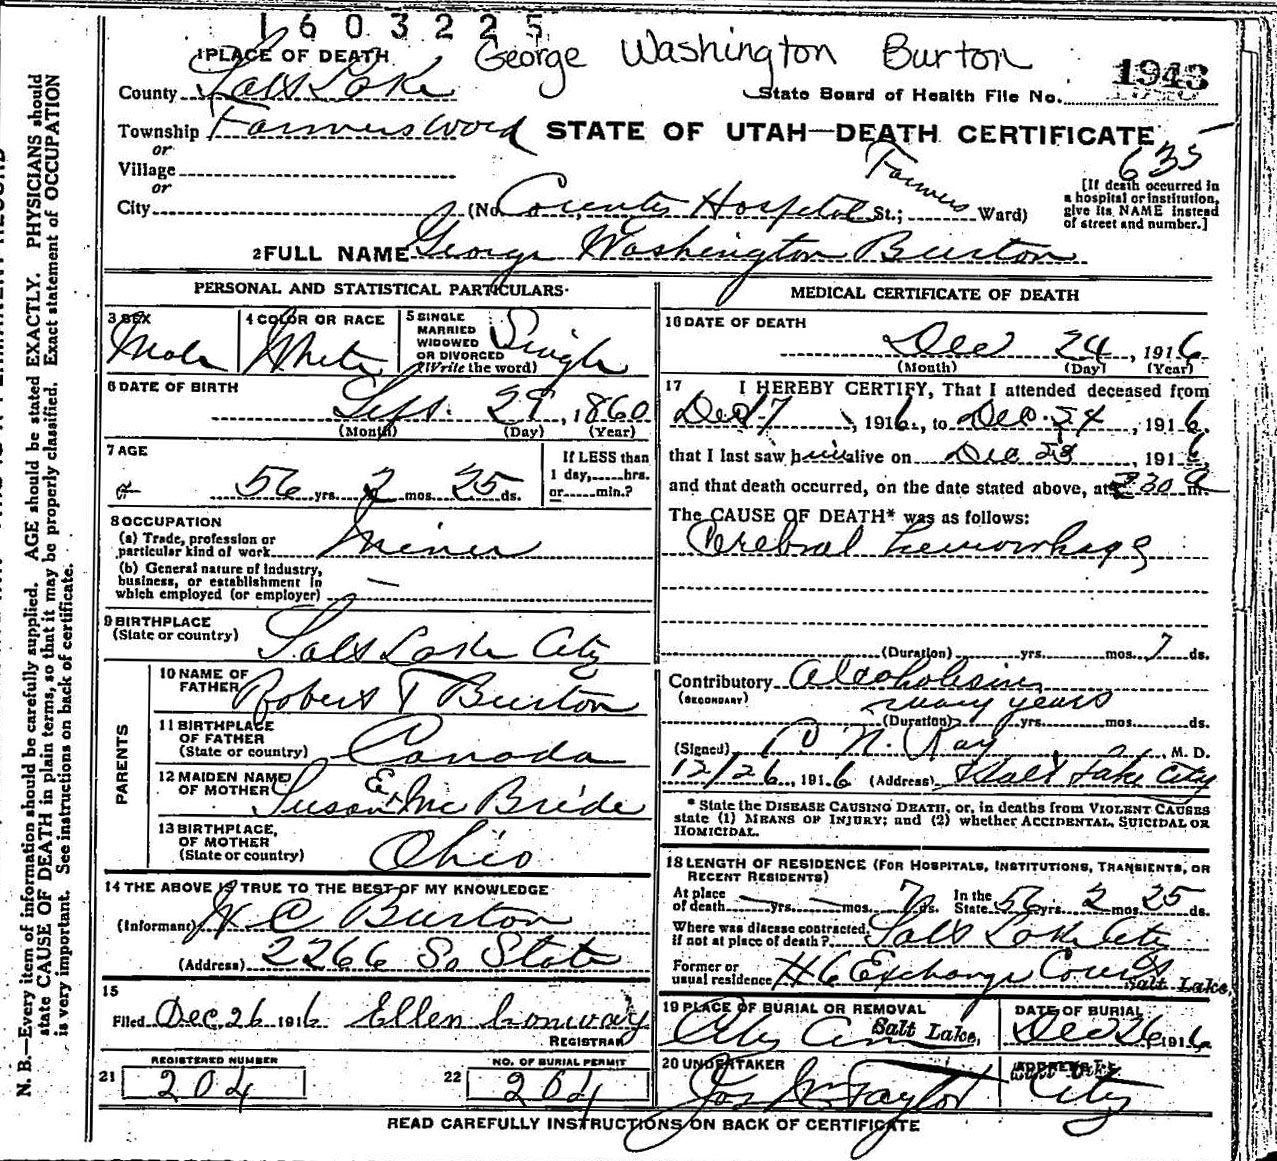 1603225
George Washington Burton
1 PLACE OF DEATH
County Salt Lake
1943
State Board of Health File No.
Township Farmers Ward
STATE OF UTAH—DEATH CERTIFICATE
or
Village
635
or
City (No. County Hospital St.; Farmers Ward)
[If death occurred in
a hospital or institution,
give its NAME instead
of street and number.]
2 FULL NAME George Washington Burton
PERSONAL AND STATISTICAL PARTICULARS
3 SEX
Male
4 COLOR OR RACE
White
5 SINGLE
MARRIED
WIDOWED
OR DIVORCED
(Write the word)
Single
6 DATE OF BIRTH
Sept. 29, 1860
(Month) (Day) (Year)
7 AGE
56 yrs. 2 mos. 25 ds.
If LESS than
1 day,......hrs.
or......min.?
8 OCCUPATION
(a) Trade, profession or
particular kind of work Miner
(b) General nature of industry,
business, or establishment in
which employed (or employer) —
9 BIRTHPLACE
(State or country) Salt Lake City
PARENTS
10 NAME OF
FATHER Robert T Burton
11 BIRTHPLACE
OF FATHER
(State or country) Canada
12 MAIDEN NAME
OF MOTHER Susan E. McBride
13 BIRTHPLACE,
OF MOTHER
(State or country) Ohio
14 THE ABOVE IS TRUE TO THE BEST OF MY KNOWLEDGE
(Informant) C Burton
(Address) 2266 So State
15
Filed Dec. 26 1916 Ellen Conway
REGISTRAR
REGISTERED NUMBER
21 204
NO. OF BURIAL PERMIT
22 204
MEDICAL CERTIFICATE OF DEATH
16 DATE OF DEATH
Dec 24, 1916
(Month) (Day) (Year)
17 I HEREBY CERTIFY, That I attended deceased from
Dec 17, 1916, to Dec. 24, 1916.
that I last saw him alive on Dec 23, 1916,
and that death occurred, on the date stated above, at 30 a m.
The CAUSE OF DEATH* was as follows:
Cerebral hemorrhage
(Duration) yrs. mos. 7 ds.
Contributory Alcoholism
(SECONDARY)
many years
(Duration) yrs. mos. ds.
(Signed) N. Ray M. D.
12/26, 1916 (Address) Salt Lake City
* State the DISEASE CAUSING DEATH, or, in deaths from VIOLENT CAUSES
state (1) MEANS OF INJURY; and (2) whether ACCIDENTAL, SUICIDAL OR
HOMICIDAL.
18 LENGTH OF RESIDENCE (FOR HOSPITALS, INSTITUTIONS, TRANSIENTS, OR
RECENT RESIDENTS)
At place
of death — yrs. — mos. 7 ds. In the
State 56 yrs. 2 mos. 25 ds.
Where was disease contracted,
if not at place of death? Salt Lake City
Former or
usual residence #6 Exchange Court Salt Lake,
19 PLACE OF BURIAL OR REMOVAL
City Cem Salt Lake,
DATE OF BURIAL
Dec 26 1916
20 UNDERTAKER
Jos Wm Taylor
ADDRESS
City
READ CAREFULLY INSTRUCTIONS ON BACK OF CERTIFICATE
N. B.—Every item of information should be carefully supplied. AGE should be stated EXACTLY. PHYSICIANS should
state CAUSE OF DEATH in plain terms, so that it may be properly classified. Exact statement of OCCUPATION
is very important. See instructions on back of certificate.